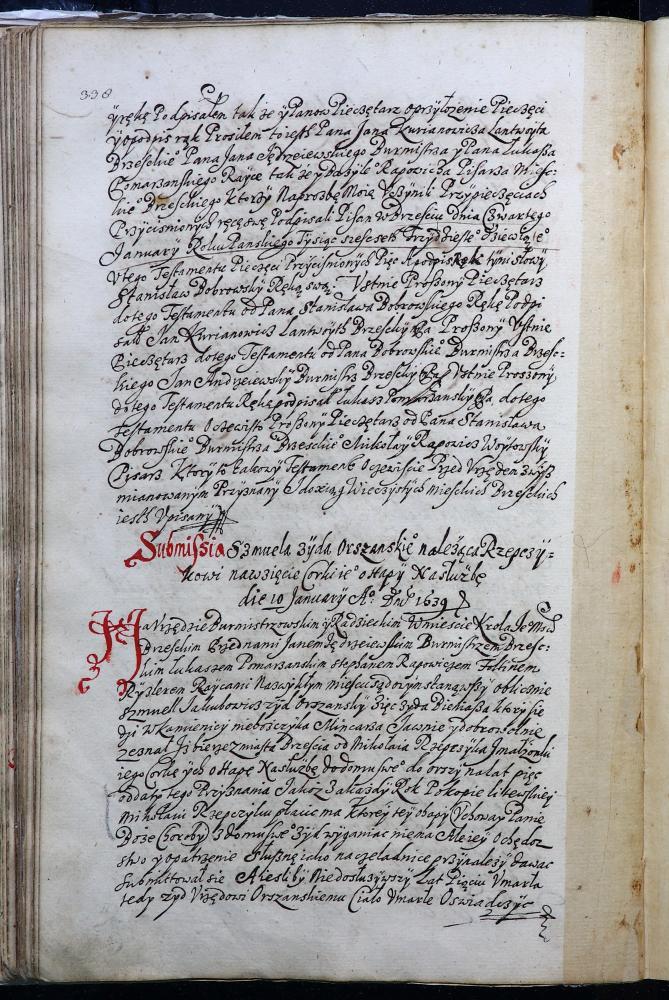 338
y ręką Podpisałem także y Panow Pieczętarz o przyłozenie Pieczęci
y o podpis rąk Prosiłem to iest Pana Jana Kurianowicza Lantwoyta
Brzeskie° Pana Jana Jędrzeiewskiego Burmistrza y Pana Łukasza
Pomarzanskiego Raycę także y Pana Rapowicza Pisarza Mieys-
kie° Brzeskiego Ktorzy Na prozbę Moię Uczynili Przy pieczęciach
Przycisnionych ręce swe Podpisali Pisan w Brzesciu Dnia Czwartego
January Roku Panskiego Tysiąc szescset Trzydzieste° dziewiąte°
U tego Testamentu Pieczęci Przycisnionych Pięc A podpis Rąk tymi słowy
Stanisław Dobrowsky Ręką swą. Ustnie Proszony Pieczętarz
do tego Testamentu od Pana Stanisława Dobrowskiego Rękę Podpi
sał Jan Kurianowicz Lantwoyth Brzesky Proszony Ustnie
Pieczętarz do tego Testamentu od Pana Dobrowskie° Burmistrza Brzes-
kiego Jan Andrzeiewsky Burmistrz Brzesky Ustnie Proszony
do tego Testamentu Rękę podpisał Łukasz Pomarzansky do tego
testamentu Oczewisto Proszony Pieczętarz od Pana Stanisława
Dobrowskie° Burmistrza Brzeskie° Mikołay Rapowicz Woytowsky
Pisarz Ktoryto takowy Testament Oczewiscie Przed Urzędem zwysz
mianowanym Przyznany Do xiąg Wieczystych mieskich Brzeskich
iesth Upisany
Submissia Szmuela Zyda Orszanskie° należąca Rzepczy-
kowi na wzięcie Corki ie° o Hapy Na służbę
die 10 January A° Dni 1639
Na Urzędzie Burmistrzowskim y Radzieckim W miescie Krola Je Msci
Brzeskim Przed nami Janem Jędrzeiewskim Burmistrzem Brzes-
kim Łukaszem Pomarzanskim Stephanem Rapowiczem
Raycami Na zwykłym mieyscu sądowym stanąwszy oblicznie
Szmuell Jakubowicz zyd Orszansky
dy w Kamienicy nieboszczyka Mincarza Jawnie y dobrowolnie
zeznał Iz bierze z miasta Brzescia od Mikołaia Rzepczyka y małżonki
iego Corkę ych o Hapę Na służbę do domu swe° do Orszy na lat pięc
od daty tego Przyznania Jakoż Za każdy Rok Po kopie litewskiey
Mikołaiowi Rzepczyku płacic ma Ktorey tey o hapy Uchoway Panie
Boże Choroby z domu swe° zyd wyganiac nie ma Alie iey Ochędoz
stwo y opatrzenie Słuszne iako na czeladnice przynależy dawac
Submittował sie A Iesli by Nie dosłuzywszy Lat Pięciu Umarła
tedy zyd Urzędowi Orszanskiemu Ciało Umarłe Oswiadczyc